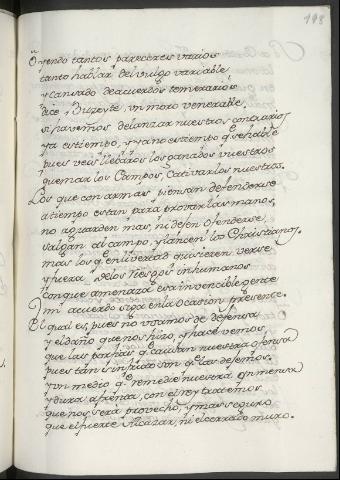 198
Oyendo tantos pareceres varios
tanto hablar del vulgo variable
y cansado de acuerdos temerarios
dice, Buzeyte, un moro venerable.
si havemos de lanzar nuestros contrarios
ya es tiempo, y ya no es tiempo q se hable
pues veis llebaros los ganados vuestros
quemar los Campos, Cativar los nuestros.
Los que con armas piensan defenderse
a tiempo estan para provar las manos,
no aguarden mas, ni dejen ofenderse
salgan al campo, y lancen los Christianos.
mas los q en livertad quisieren verse
y fuera de los riesgos inhumanos
con que amenaza esa invencible gente
mi acuerdo siga en la ocasion presente.
El qual es, pues no usamos de defensa
y el daño que nos hizo, y hace vemos
que las porfias q causan nuestra ofensa
pues tan sin fruto son q las dejemos.
y un medio q remedie nuestra inmensa
y dura afrenta, con el rey tratemos
que nos sera provecho, y mas seguro
que el fuerte Alcazar, ni el cerrado muro.